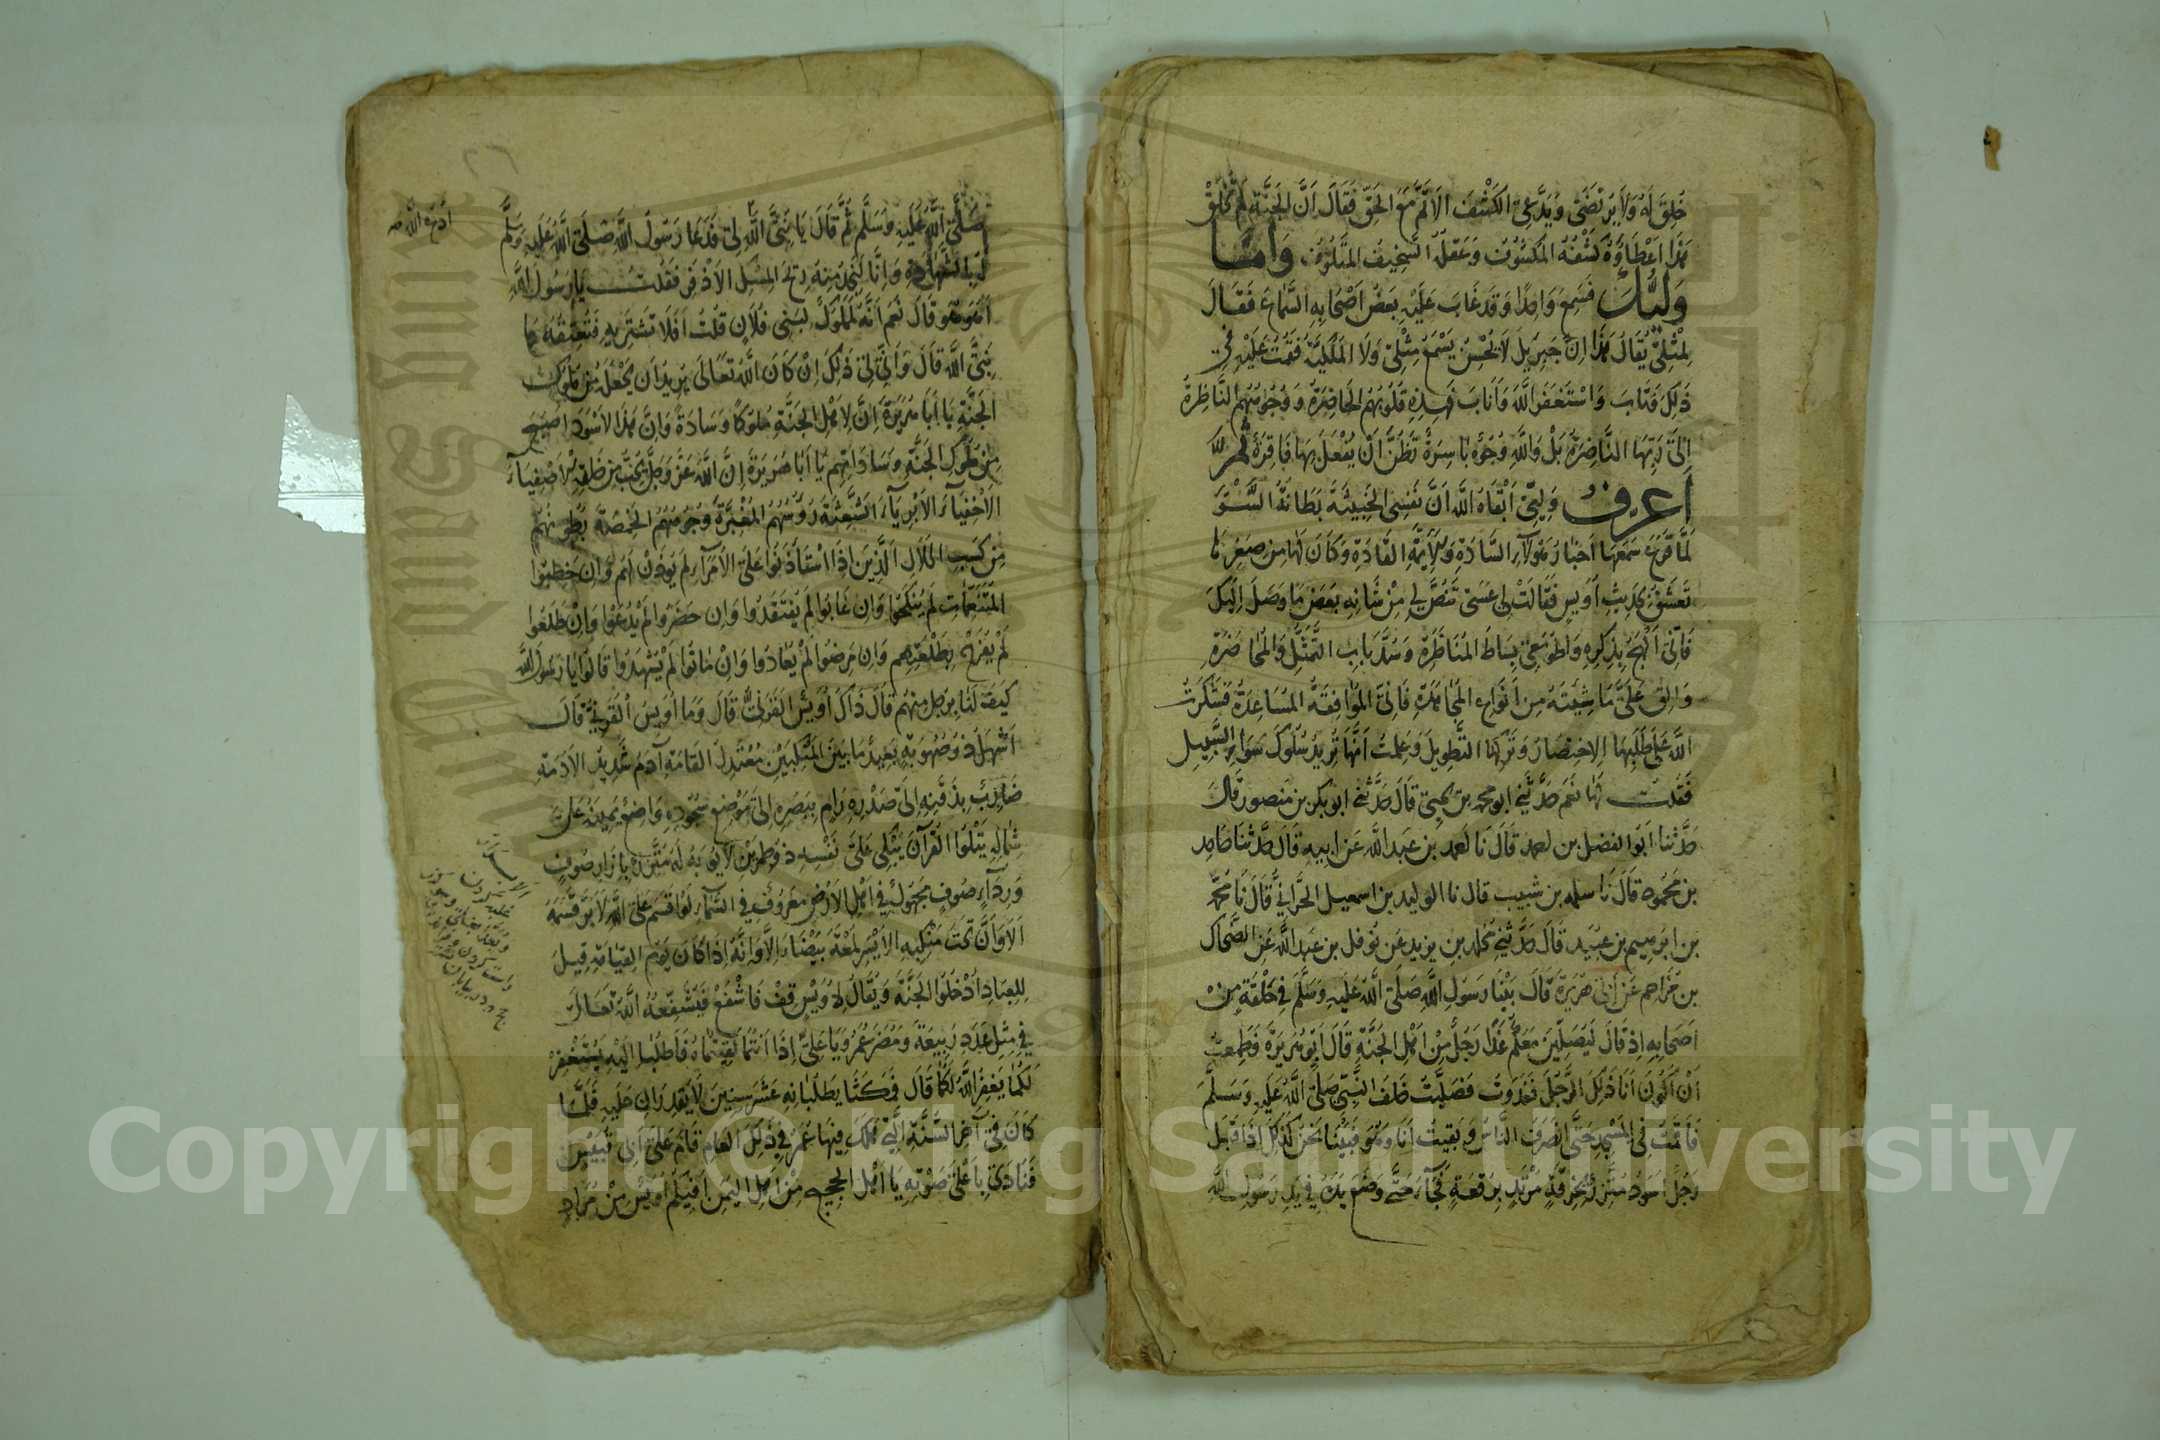 خلق له ولا يرتضى ويدعى الكشف الاتم مع الحق فقال ان الجنة لم تخلق
هذا اعطاؤه كشفه المكسوف وعقله السخيف المتلوف واما
وليك فسمع واحدا وقد غاب عليه بعض اصحابه السماع فقال
لمثلي يقال هذا ان جبريل لا يحسن يسمع مثلي ولا الملكية فقمت عليه في
ذلك فتاب واستغفر الله واناب فهذه قلوبهم الحاضرة ووجوههم الناظرة
الى ربها الناضرة بل والله وجوه باسرة تظن ان يفعل بها فاقرة
اعرف وليي ابقاه الله ان نفسي الخبيثة بطانة السوء
لما قرع سمعها اخبار هولاء السادة والايمة القادة وكان لها من صغرها
تعشق بحديث اويس فقالت لي عسى تنص لي من شانه بعض ما وصل اليك
فاني الهج بذكره واطو معي بساط المناظرة وسد باب التمثل والمحاضرة
والق علي ما شيته من انواع المجاهدة فاني الموافقة المساعدة فشكرت
الله على طلبها الاختصار وتركها التطويل وعلمت انها تريد سلوك سواء السبيل
فقلت لها نعم حدثني ابو محمد بن يحيى قال حدثني ابو بكر بن منصور قال
حدثنا ابو الفضل بن احمد قال نا احمد بن عبد الله عن ابيه قال حدثنا حامد
بن محمود قال نا سلمه بن شبيب قال نا الوليد بن اسمعيل الحراني قال نا محمد
بن ابرهيم بن عبيد قال حدثني مخلد بن يزيد عن نوفل بن عبد الله عن الضحاك
بن مزاحم عن ابي هريرة قال بينا رسول الله صلى الله عليه وسلم في حلقة من
اصحابه اذ قال ليصلين معكم غدا رجل من اهل الجنة قال ابو هريرة فطمعت
ان اكون انا ذلك الرجل فغدوت فصليت خلف النبي صلى الله عليه وسلم
فاقمت في المسجد حتى انصرف الناس وبقيت انا وهو فبينا نحن كذلك اذ اقبل
رجل اسود متزر بخرقة مرتد برقعة فجاء حتى وضع يده في يد رسول الله
صلى الله عليه وسلم ثم قال يا نبي الله ادع الله لي فدعا رسول الله صلى الله عليه وسلم
له بالشهادة وانا لنجد منه ريح المسك الاذفر فقلت يا رسول الله
اهو هو قال نعم انه لمملوك لبني فلان قلت افلا تشتريه فتعتقه يا
نبي الله قال واني لي ذلك ان كان الله تعالى يريد ان يجعله من ملوك
الجنة يا ابا هريرة ان لاهل الجنة ملوكا وسادة وان هذا الاسود اصبح
من ملوك الجنة وساداتهم يا ابا هريرة ان الله عز وجل يحب من خلقه الاصفياء
الاخفياء الابرياء الشعثة رؤسهم المغبرة وجوههم الخمصة بطونهم
من كسب الحلال الذين اذا استأذنوا على الامراء لم يوذن لهم وان خطبوا
المتنعمات لم ينكحوا وان غابوا لم يفتقدوا وان حضروا لم يدعوا وان طلعوا
لم يفرح بطلعتهم وان مرضوا لم يعادوا وان ماتوا لم يشهدوا قالوا يا رسول الله
كيف لنا برجل منهم قال ذاك اويس القرني قال وما اويس القرني قال
اشهل ذو صهوبة بعيد ما بين المنكبين معتدل القامة آدم شديد الادمة
ضارب بذقنه الى صدره رام ببصره الى موضع سجوده واضع يمينه على
شماله يتلوا القرآن يبكي على نفسه ذو طمرين لا يوبه له متزر بازار صوف
ورداء صوف مجهول في اهل الارض معروف في السماء لو اقسم على الله لابر قسمه
الا وان تحت منكبه الايسر لمعة بيضاء الا وانه اذا كان يوم القيامة قيل
للعباد ادخلوا الجنة ويقال لاويس قف فاشفع فيشفعه الله تعالى
في مثل عدد ربيعة ومضر عمر ويا علي اذا انتما لقيتماه فاطلبا اليه يستغفر
لكما يغفر الله لكما قال فمكثا يطلبانه عشر سنين لا يقدران عليه فلما
كان في آخر السنة التي هلك فيها عمر في ذلك العام قام على ابي قبيس
فنادى باعلى صوته يا اهل الحجيج من اهل اليمن افيكم اويس من مراد
ادع الله
Copyright © King Saud University